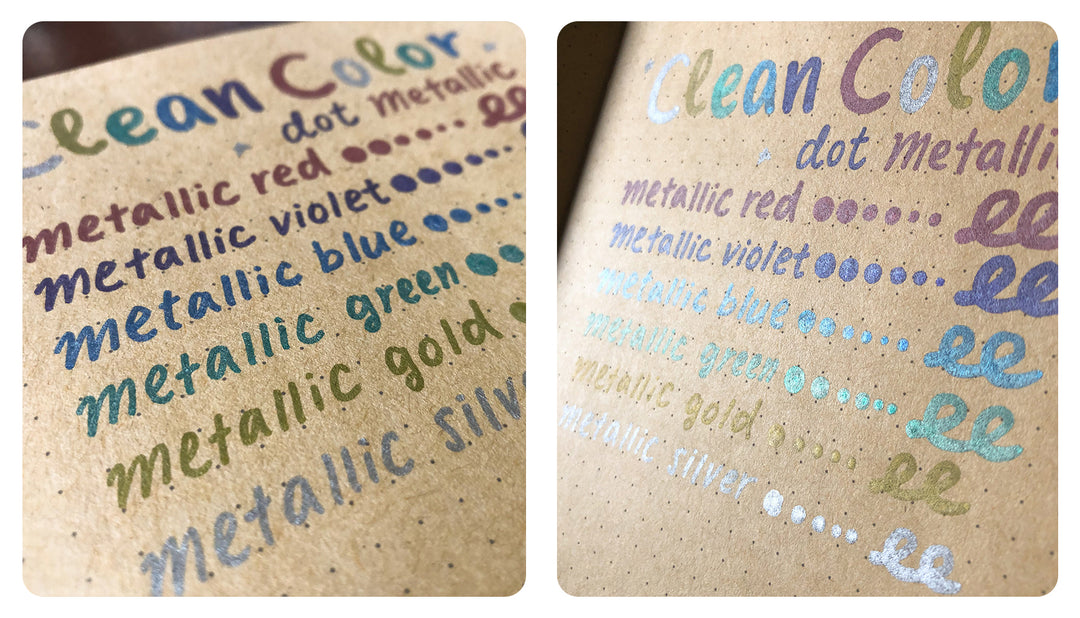 Clean Color
dot metallic
metallic red
metallic violet
metallic blue
metallic green
metallic gold
metallic silve
Clean Colo
dot metalli
metallic red ee
metallic violet ee
metallic blue ee
metallic green ee
metallic gold ee
metallic silver ee